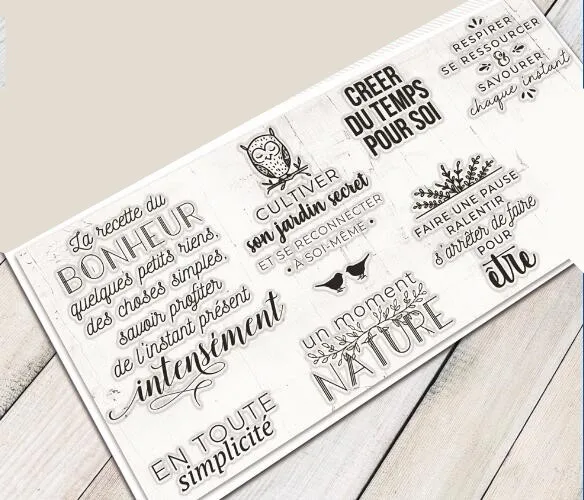 La recette du
BONHEUR
quelques petits riens,
des choses simples,
savoir profiter
de l'instant présent
intensément
EN TOUTE
simplicité
CULTIVER
son jardin secret
ET SE RECONNECTER
À SOI-MÊME
un moment
NATURE
CRÉER
DU TEMPS
POUR SOI
FAIRE UNE PAUSE
RALENTIR
s'arrêter de faire
POUR
être
RESPIRER
SE RESSOURCER
&
SAVOURER
chaque instant